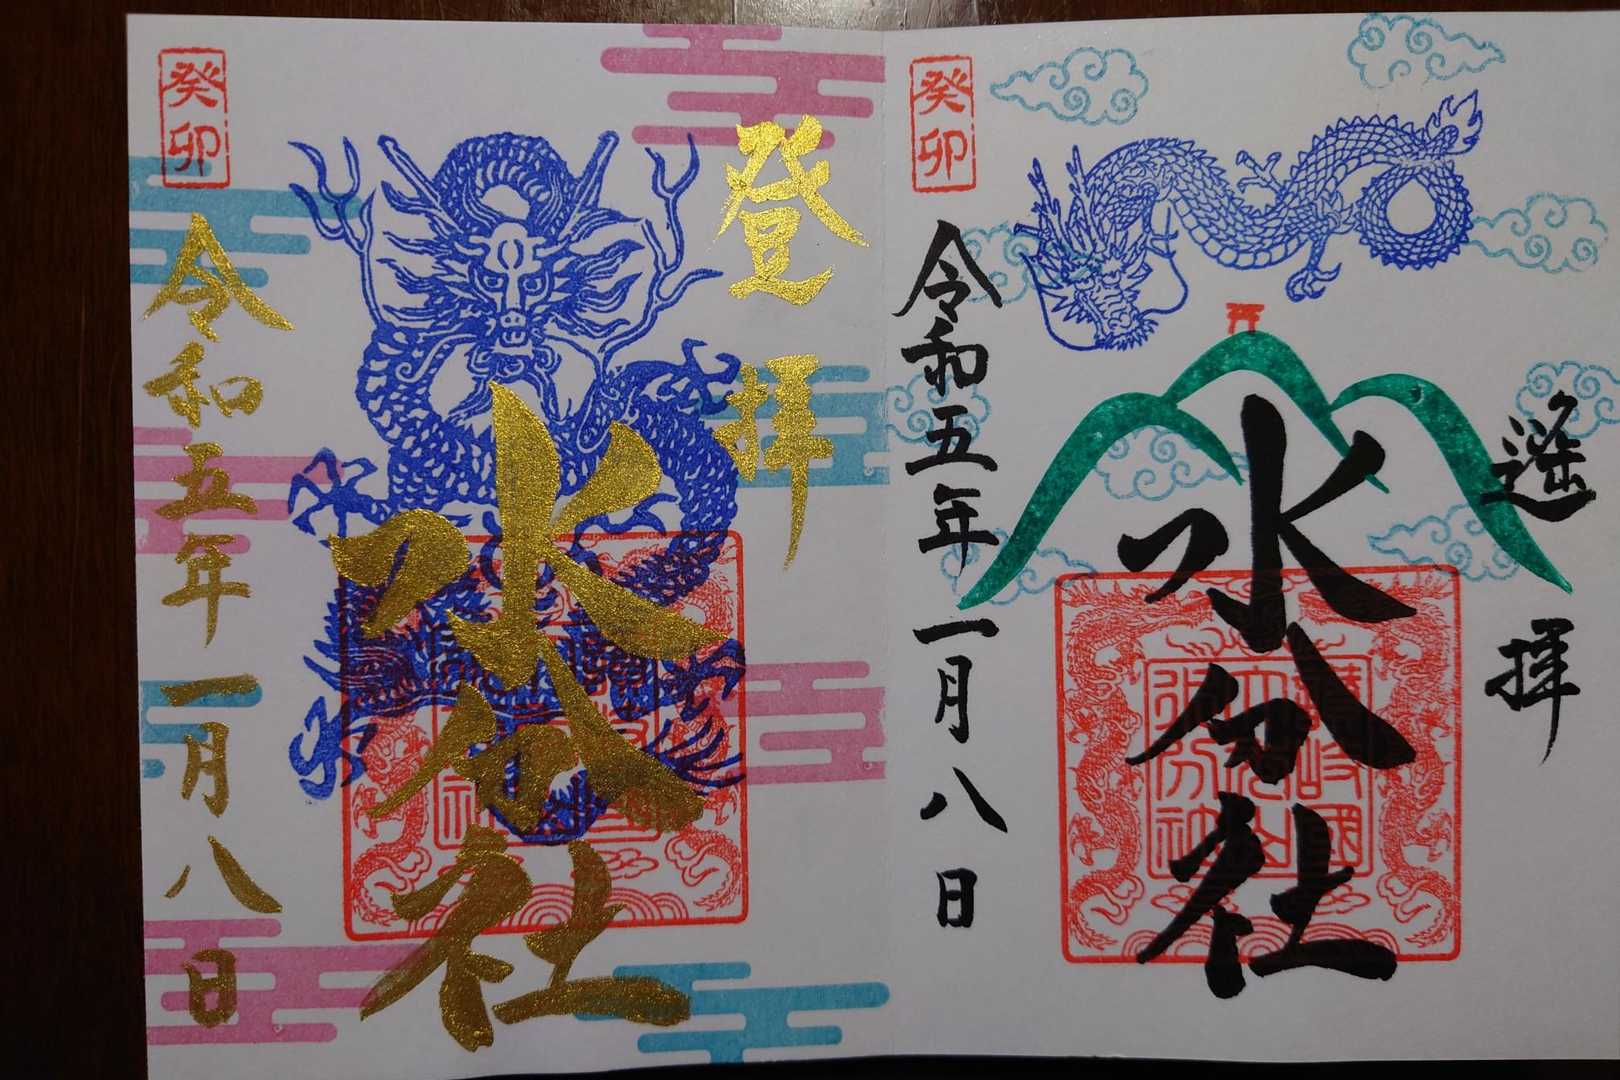 遙拝
水分社
讃岐國
水分社
癸卯
令和五年一月八日
登拝
水分社
癸卯
令和五年一月八日